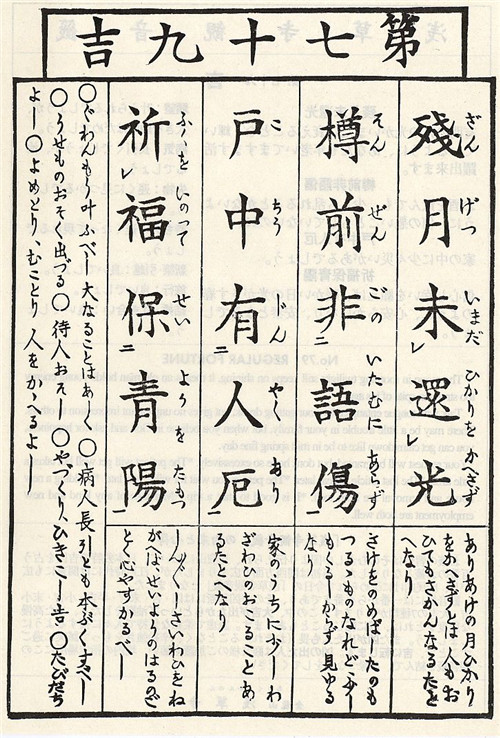 第七十九吉
殘月未レ還レ光
ざんげついまだひかりをかへさず
ありあけの月ひかり
をかへさずとは人もお
ひてもさかんなるたと
へなり
樽前非ニ語傷一
そんぜんごのいたむにあらず
さけをのめばたのも
もくるしからず見ゆる
なり
戸中有ニ人厄一
こちうじんやくあり
家のうちに少しわ
ざわひのおこることあ
るたとへなり
祈レ福保ニ青陽一
ふくをいのつてせいようをたもつ
しんじんしさいわひをね
がへばせいようのはるのご
とく心やすかるべし
○ぐわんもう叶ふべし大なることはあしし○病人長引とも本ぷくすべし
○うせものおそく出づる○待人おそし○やづくり、ひきこし吉○たびだち
よし○よめとり、むことり人をかゝへるよし